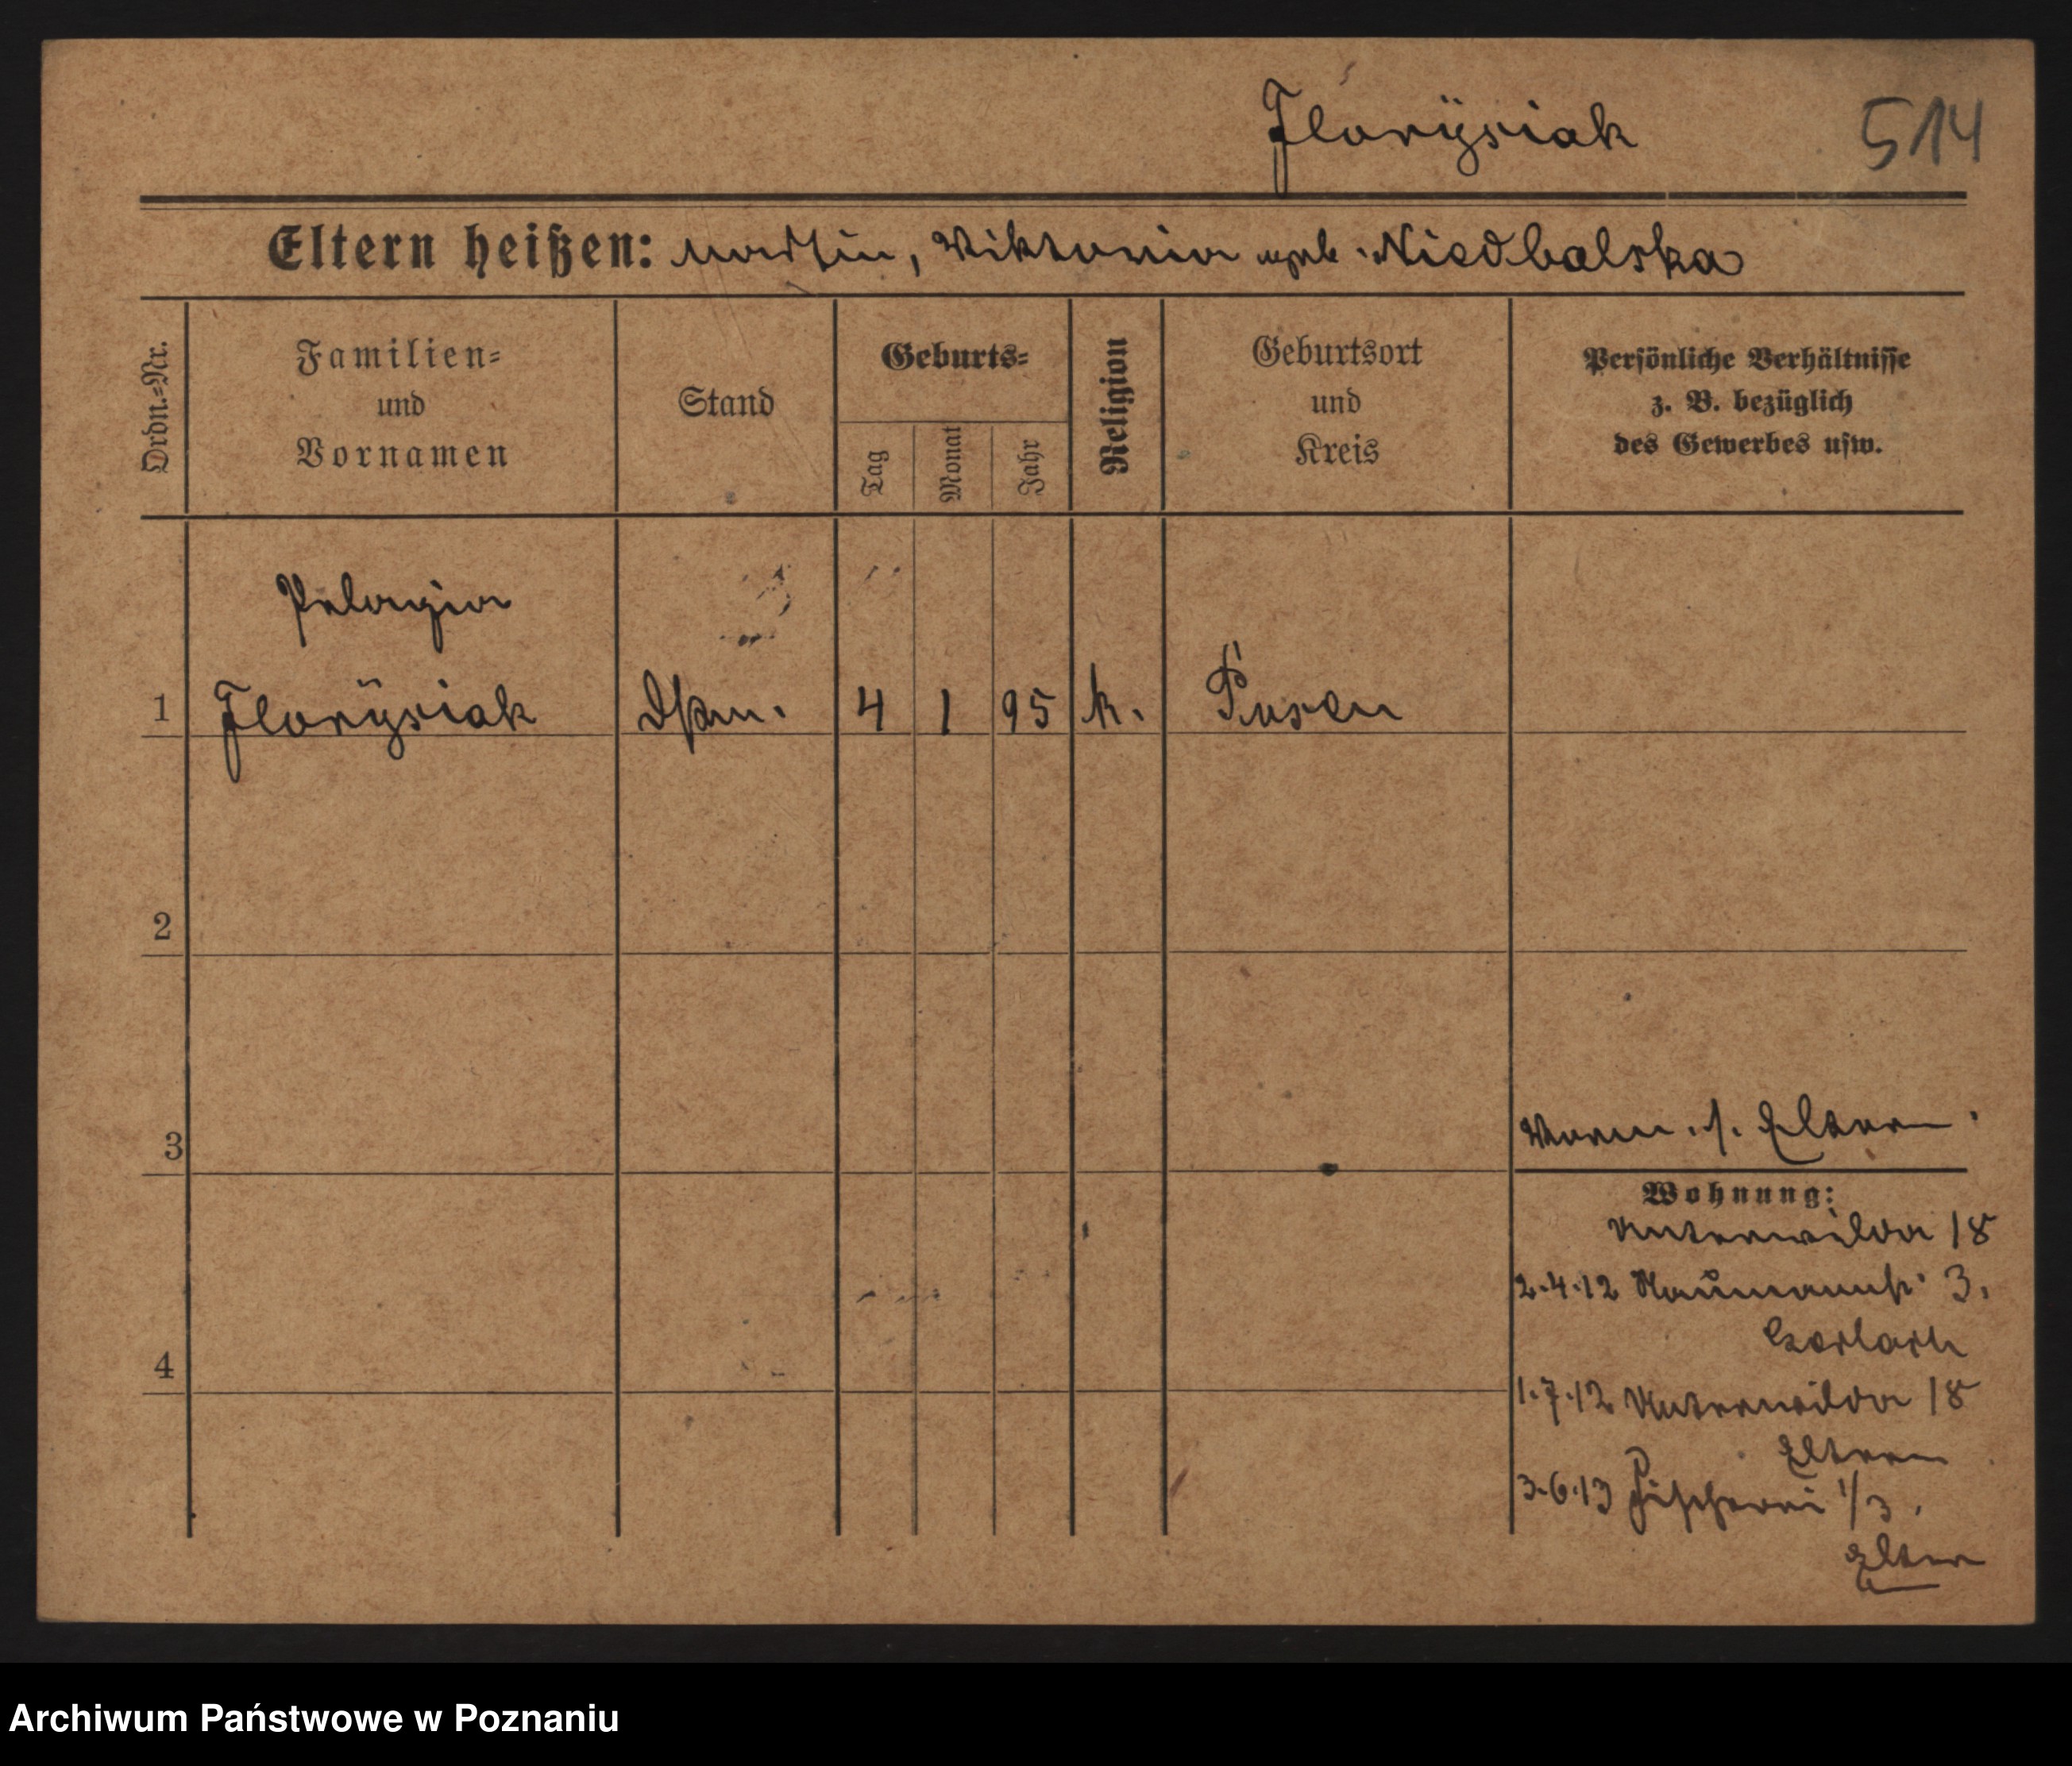 Florÿsiak 514
Eltern heißen: Martin, Viktoria geb. Niedbalska
Ordn.-Nr.
Familien-
und
Vornamen
Stand
Geburts-
Tag
Monat
Jahr
Religion
Geburtsort
und
Kreis
Persönliche Verhältnisse
z. B. bezüglich
des Gewerbes usw.
Pelagia
1 Florÿsiak 4 1 95 k. Posen
2
3
Vorm. s. Eltern.
Wohnung:
Unterwilda 18
2.4.12 Naumannstr. 3.
4
1.7.12 Unterwilda 18
Eltern
3.6.13 Fischerei 1/3.
Eltern
Archiwum Państwowe w Poznaniu